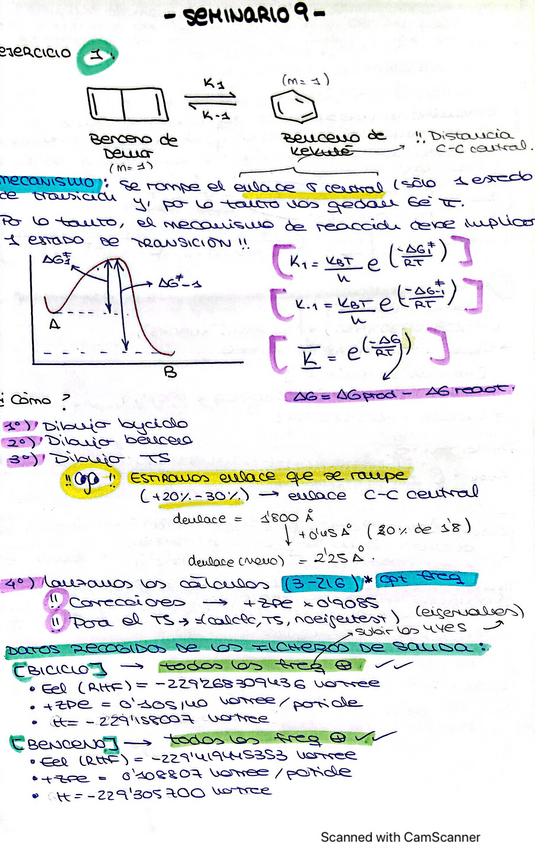 - SEMINARIO 9 -
EJERCICIO 1.
K1
K-1
(m=1)
Benceno de Dewar
(m=1)
Benceno de Kekulé
!! Distancia C-C central.
MECANISMO: Se rompe el enlace σ central (sólo 1 estado
de transición y, por lo tanto nos quedan 6e- π.
Por lo tanto, el mecanismo de reacción debe implicar
1 ESTADO DE TRANSICIÓN !!
ΔG‡1
ΔG‡-1
A
B
[K1 = KBT/h e(-ΔG‡1/RT)]
[K-1 = KBT/h e(-ΔG‡-1/RT)]
[K = e(-ΔG/RT)]
ΔG = ΔGprod - ΔG react.
¿Cómo?
1º) Dibujo byciclo
2º) Dibujo benceno
3º) Dibujo TS
!! !! ESTIRAMOS enlace que se rompe
(+20%-30%) → enlace C-C central
denlace = 1'800 Å
↓ +0'45 Å (20% de 1'8)
denlace (nuevo) = 2'25 Å.
4º) Lanzamos los cálculos (3-21G)* opt freq
!! Correcciones → +ZPE x 0'9085
!! Para el TS → (calcfc, TS, noeigentest) (eigenvalues)
DATOS RECOGIDOS DE LOS FICHEROS DE SALIDA:
[BICICLO] → todas las freq ⊕ ✓✓
• Eel (RHF) = -229'268309436 hartree
• +ZPE = 0'105140 hartree/particle
• H = -229'158007 hartree
[BENCENO] → todas las freq ⊕ ✓✓
• Eel (RHF) = -229'419445353 hartree
• +ZPE = 0'108807 hartree/particle
• H = -229'305700 hartree
Scanned with CamScanner